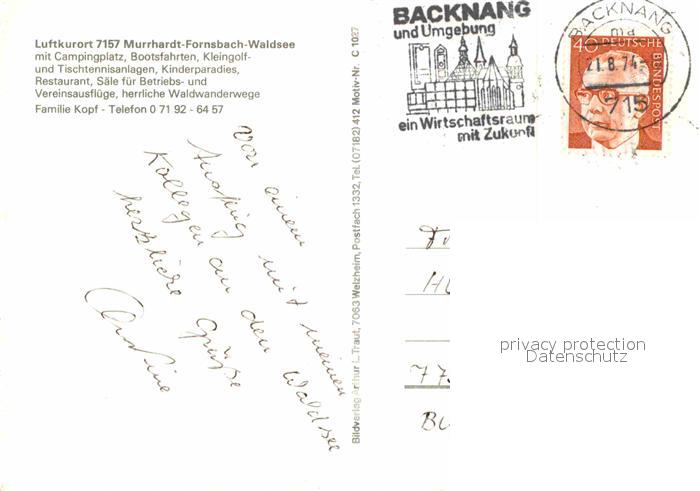 Luftkurort 7157 Murrhardt-Fornsbach-Waldsee
mit Campingplatz, Bootsfahrten, Kleingolf-
und Tischtennisanlagen, Kinderparadies,
Restaurant, Säle für Betriebs- und
Vereinsausflüge, herrliche Waldwanderwege
Familie Kopf - Telefon 0 71 92 - 64 57
Von einem
Ausflug mit meinen
Kollegen an den Waldsee
herzliche Grüße
Bildverlag Arthur L. Traut, 7063 Welzheim, Postfach 1332, Tel. (07182) 412 Motiv-Nr. C 1027
BACKNANG
und Umgebung
ein Wirtschaftsraum
mit Zukunft
BACKNANG
ma
21.8.74-
715
40 DEUTSCHE
BUNDESPOST
77
privacy protection
Datenschutz